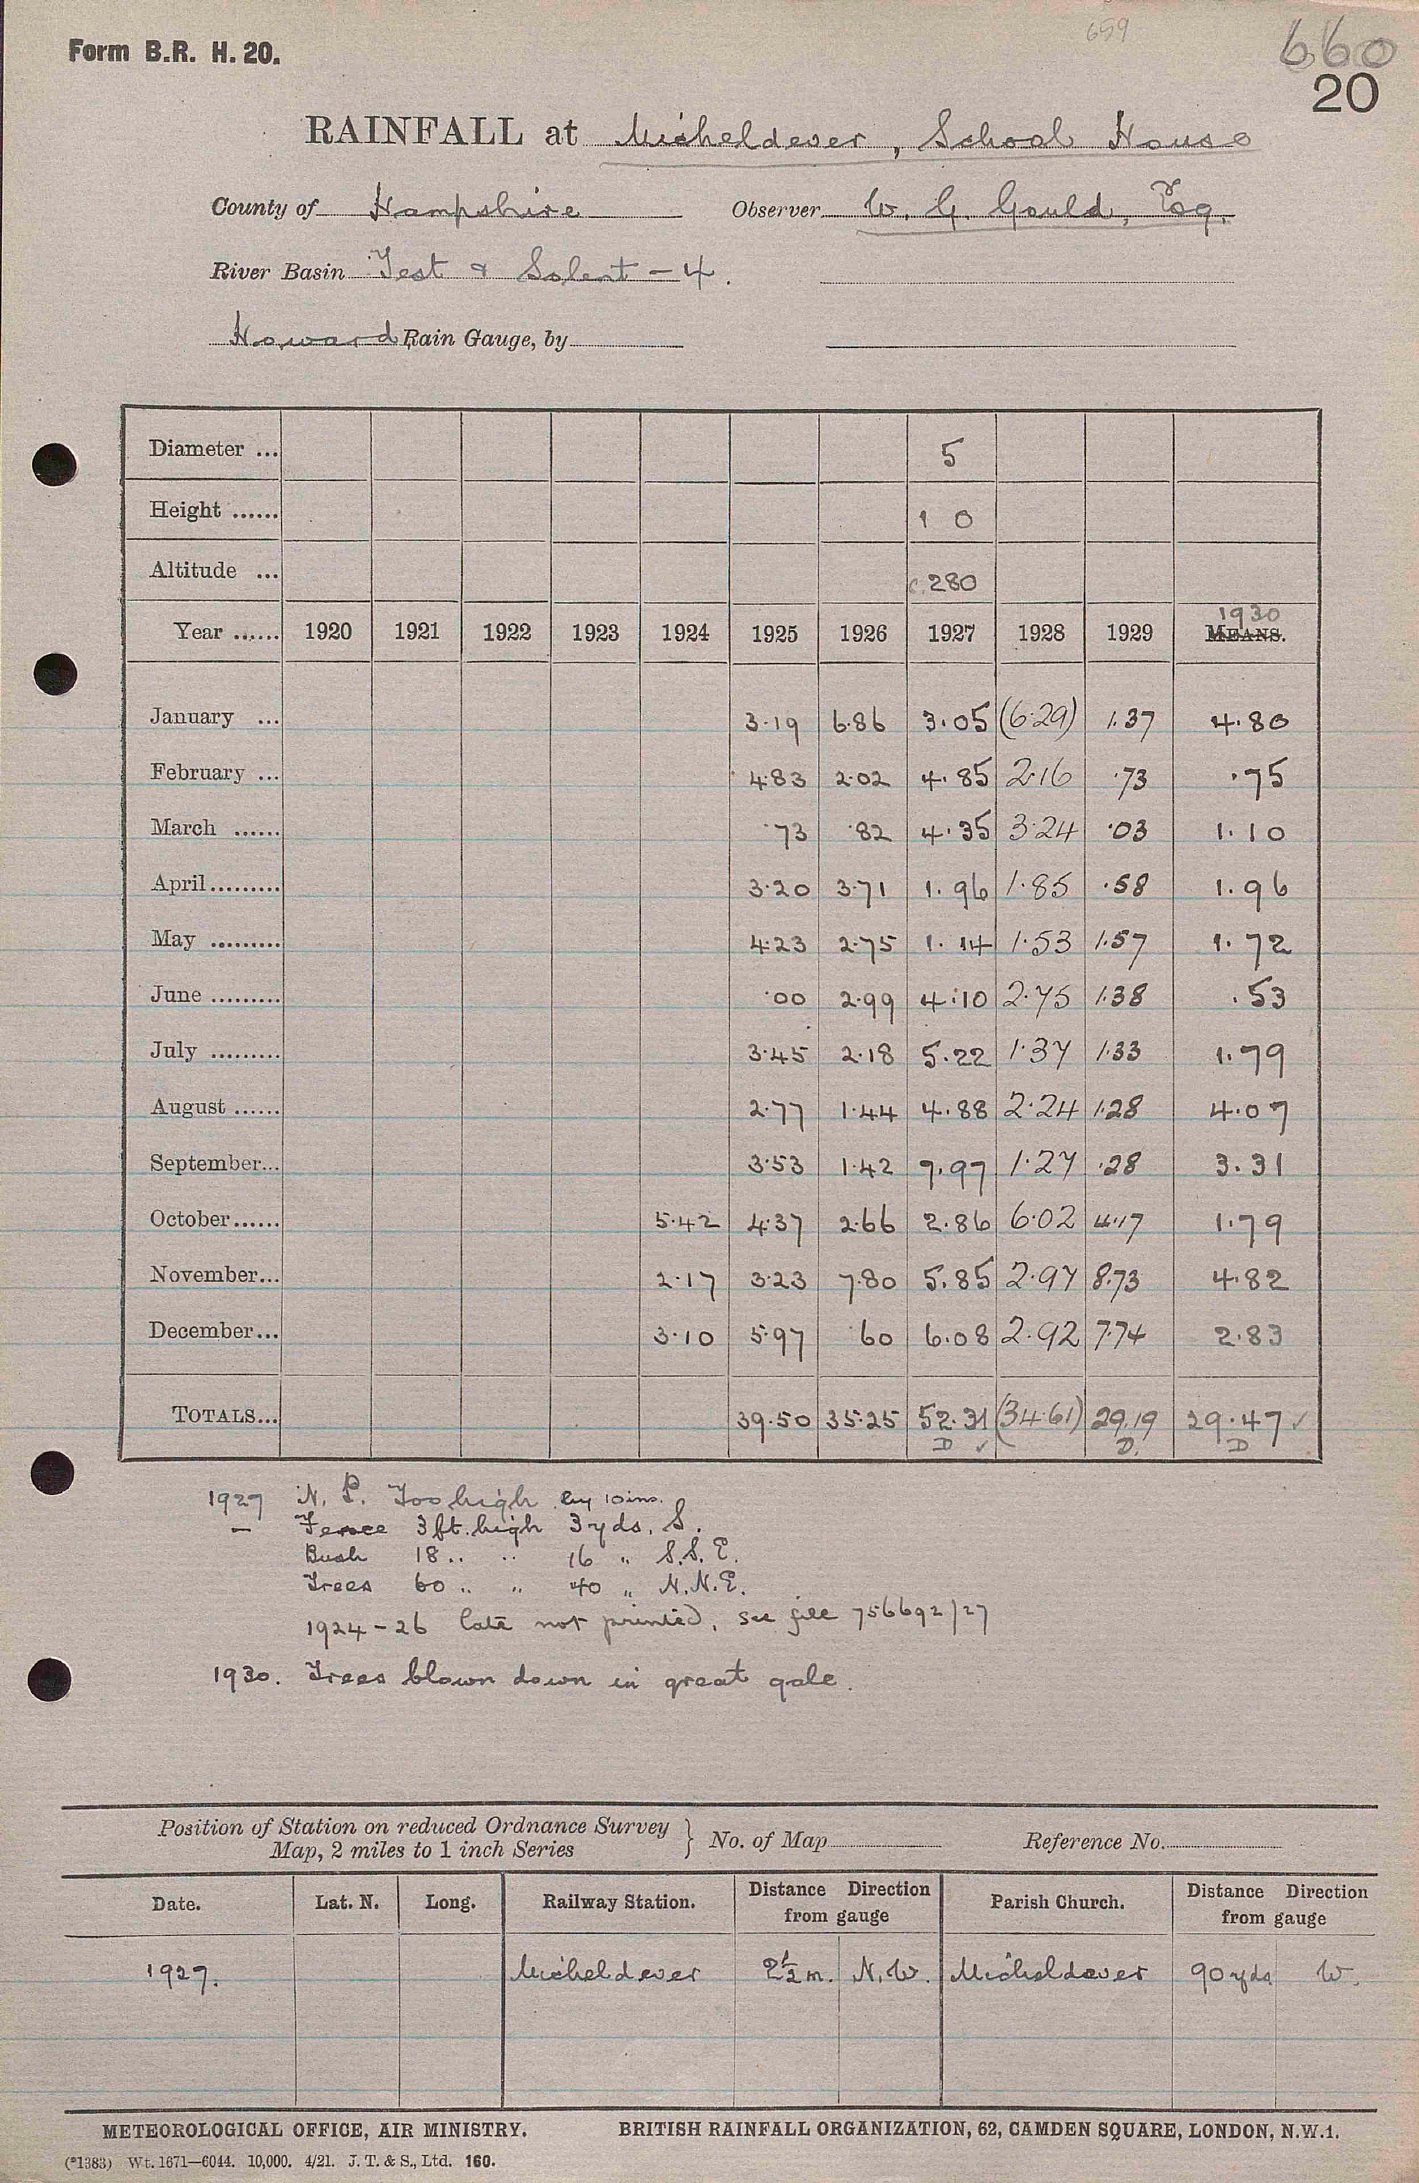 659
660
Form B.R. H. 20.
20
RAINFALL at Micheldever, School House
County of Hampshire Observer W. G. Gould, Esq.
River Basin Test & Solent - 4.
Howard Rain Gauge, by
Diameter ... 5
Height ...... 1 0
Altitude ... c.280
1930
Year ...... 1920 1921 1922 1923 1924 1925 1926 1927 1928 1929 MEANS.
January ... 3.19 6.86 3.05 (6.29) 1.37 4.80
February ... 4.83 2.02 4.85 2.16 .73 .75
March ...... .73 .82 4.35 3.24 .03 1.10
April......... 3.20 3.71 1.96 1.85 .58 1.96
May ......... 4.23 2.75 1.14 1.53 1.57 1.72
June ......... .00 2.99 4.10 2.75 1.38 .53
July ......... 3.45 2.18 5.22 1.37 1.33 1.79
August ...... 2.77 1.44 4.88 2.24 1.28 4.07
September... 3.53 1.42 7.97 1.27 .28 3.31
October...... 5.42 4.37 2.66 2.86 6.02 4.17 1.79
November... 2.17 3.23 7.80 5.85 2.97 8.73 4.82
December... 3.10 5.97 .60 6.08 2.92 7.74 2.83
TOTALS... 39.50 35.25 52.31 (34.61) 29.19 29.47 ✓
D ✓ D. D
1927 N. P. Too high by 10ins.
— Fence 3 ft. high 3 yds. S.
Bush 18 .. .. 16 " S.S.E.
Trees 60 .. " 40 " N.N.E.
1924-26 late not printed, see file 756692/27
1930. Trees blown down in great gale.
Position of Station on reduced Ordnance Survey Map, 2 miles to 1 inch Series } No. of Map Reference No.
Date. Lat. N. Long. Railway Station. Distance Direction from gauge Parish Church. Distance Direction from gauge
1927. Micheldever 2½ m. N.W. Micheldever 90 yds W.
METEOROLOGICAL OFFICE, AIR MINISTRY. BRITISH RAINFALL ORGANIZATION, 62, CAMDEN SQUARE, LONDON, N.W.1.
(*1383) Wt. 1671—6044. 10,000. 4/21. J. T. & S., Ltd. 160.